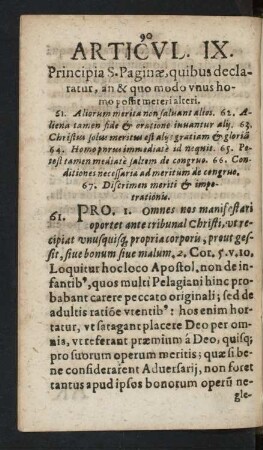 90
ARTICVL. IX.
Principia S. Paginæ, quibus decla-
ratur, an & quo modo vnus ho-
mo possit mereri alteri.
61. Aliorum merita non saluant alios. 62. A-
liena tamen fide & oratione iuuantur alij. 63.
Christus solus meritus est alijs gratiam & gloriã
64. Homo purus immediatè id nequit. 65. Po-
test tamen mediatè saltem de congruo. 66. Con-
ditiones necessaria ad meritum de congruo.
67. Discrimen meriti & impe-
trationis.
61. PRO. 1. Omnes nos manifestari
oportet ante tribunal Christi, vt re-
cipiat vnusquisq; propria corporis, prout ges-
sit, siue bonum siue malum. 2. Cot. 5. v. 10.
Loquitur hoc loco Apostol, non de in-
fantib', quos multi Pelagiani hinc pro-
babant carere peccato originali; sed de
adultis ratiõe vtentib': hos enim hor-
tatur, vt satagant placere Deo per om-
nia, vt referant præmium à Deo, quisq;
pro suorum operum meritis; quæ si be-
ne considerarent Aduersarij, non foret
tantus apud ipsos bonorum operũ ne-
gle-